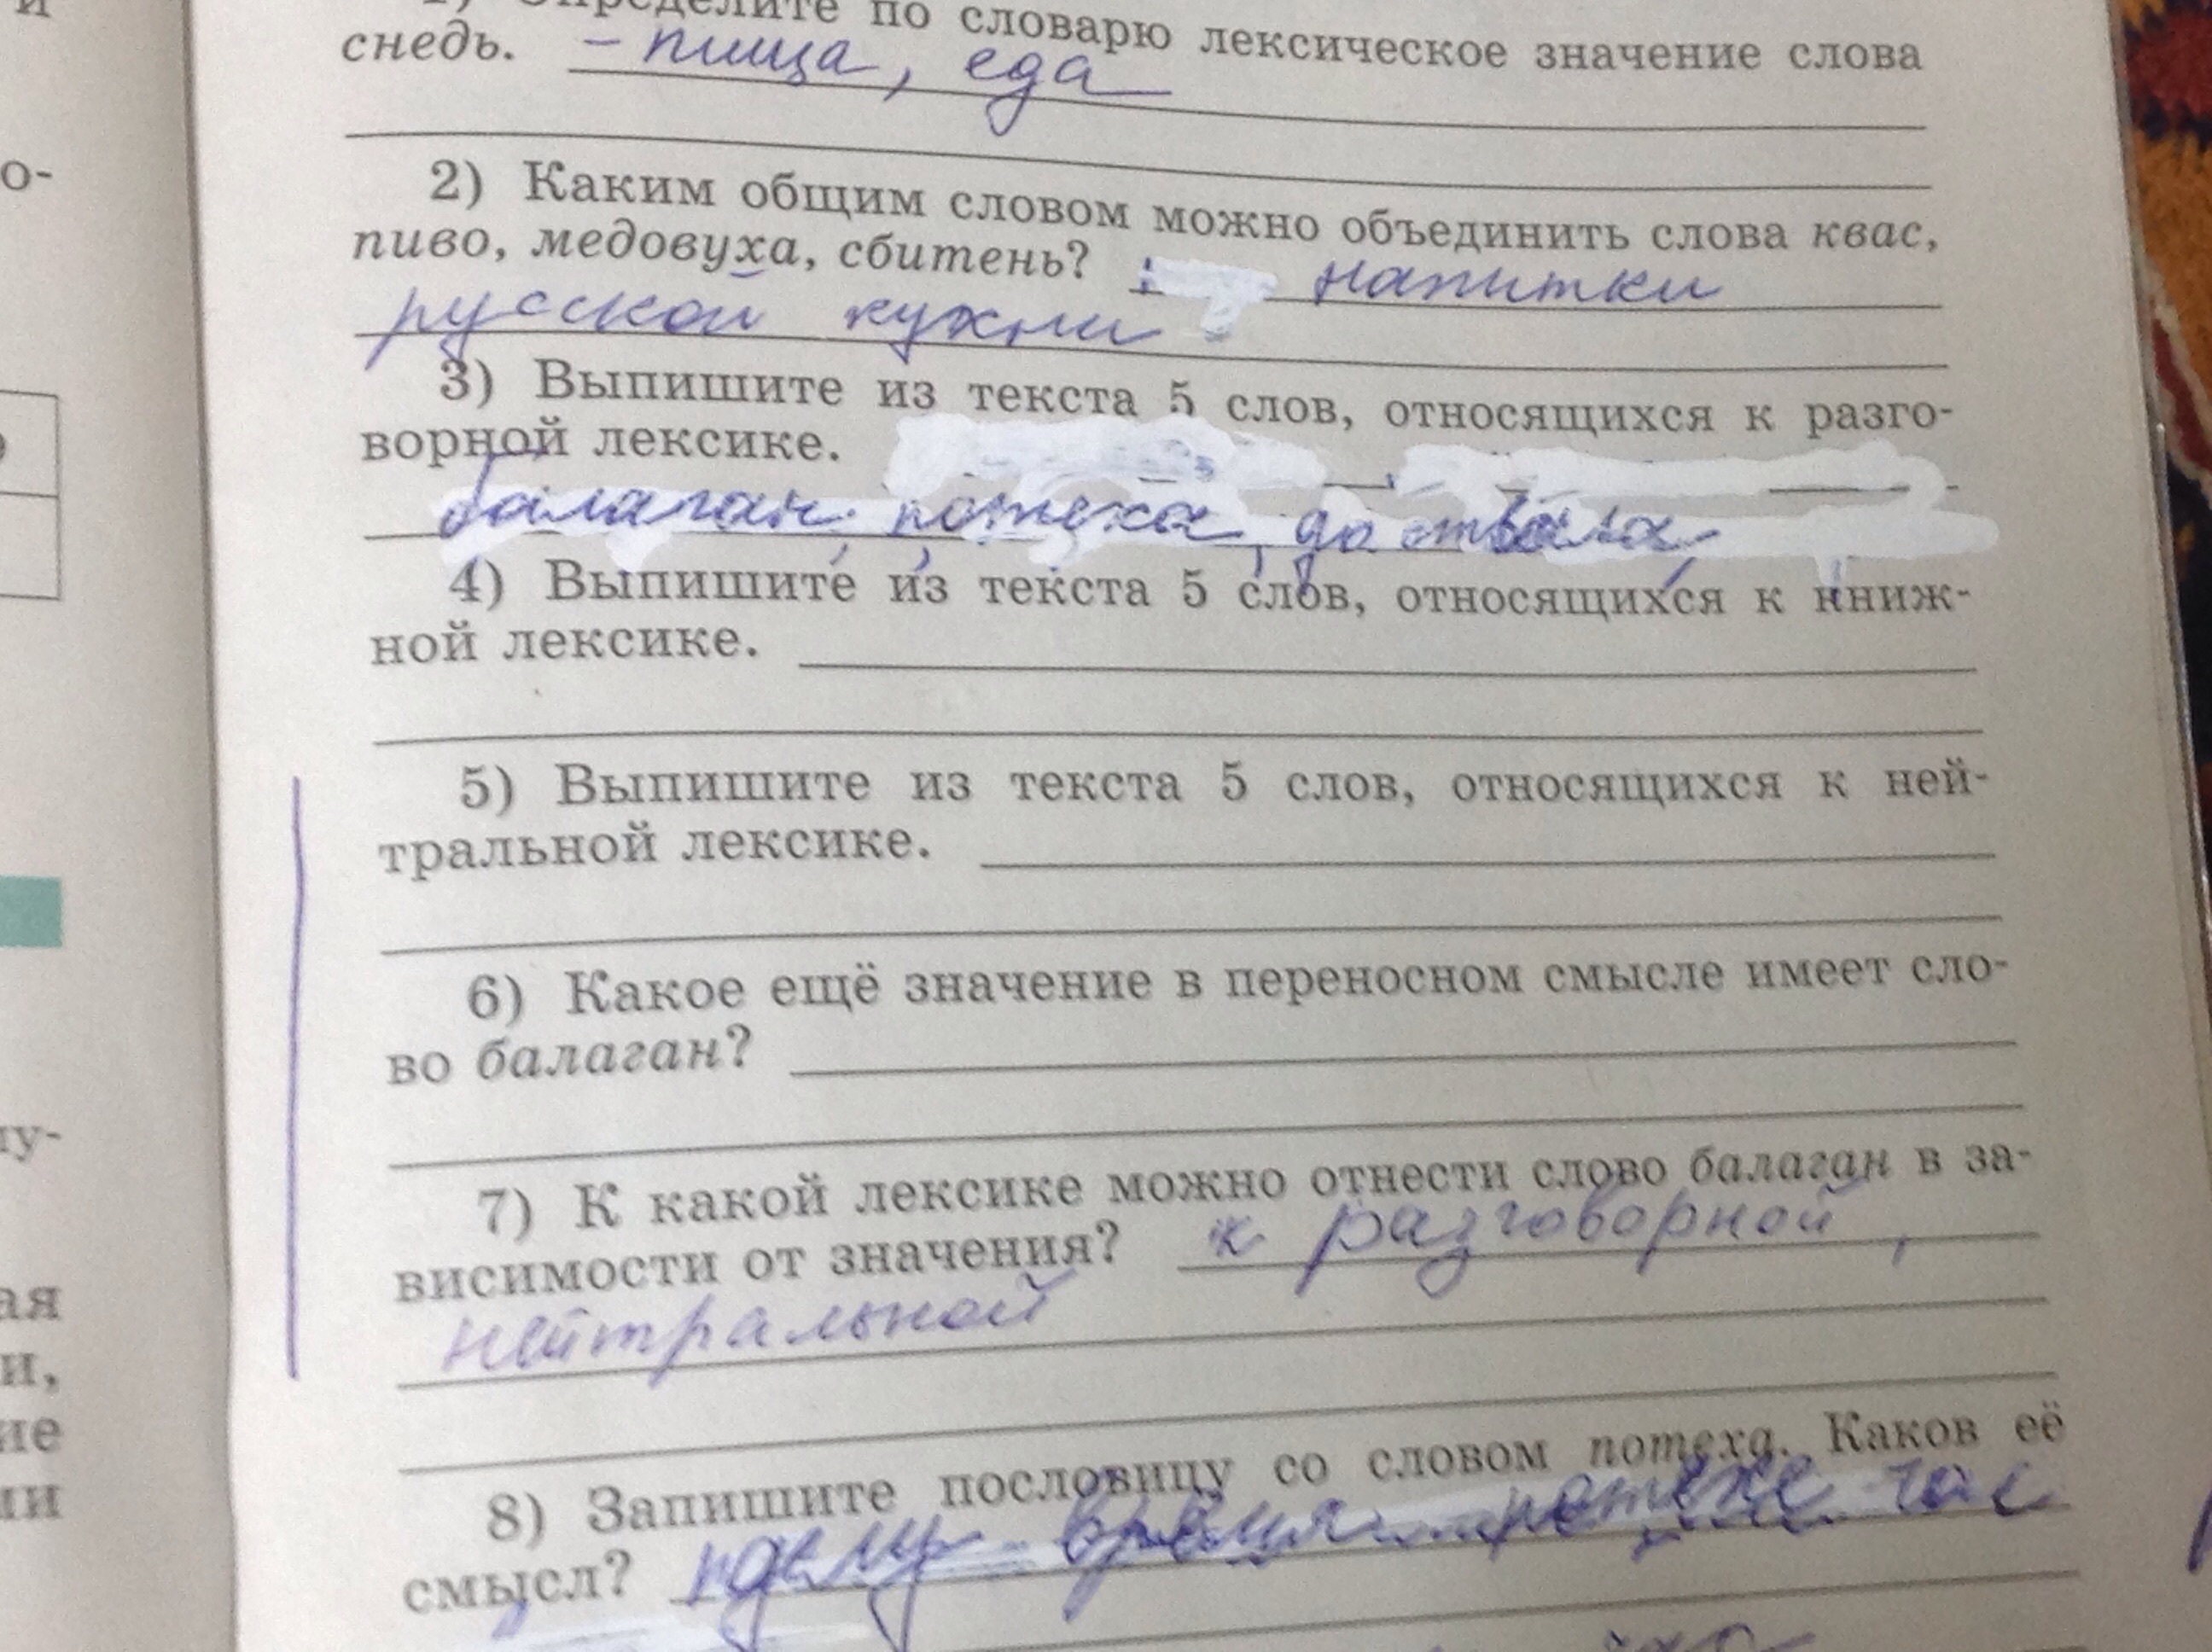 и
1) Определите по словарю лексическое значение слова
снедь. – пища, еда
о-
2) Каким общим словом можно объединить слова квас,
пиво, медовуха, сбитень? напитки
русской кухни
3) Выпишите из текста 5 слов, относящихся к разго-
ворной лексике.
балаган, потеха, до отвала,
4) Выпишите из текста 5 слов, относящихся к книж-
ной лексике.
5) Выпишите из текста 5 слов, относящихся к ней-
тральной лексике.
6) Какое ещё значение в переносном смысле имеет сло-
во балаган?
му-
7) К какой лексике можно отнести слово балаган в за-
висимости от значения? к разговорной,
нейтральной
ая
и,
ие
ми
8) Запишите пословицу со словом потеха. Каков её
смысл? делу – время потехе час